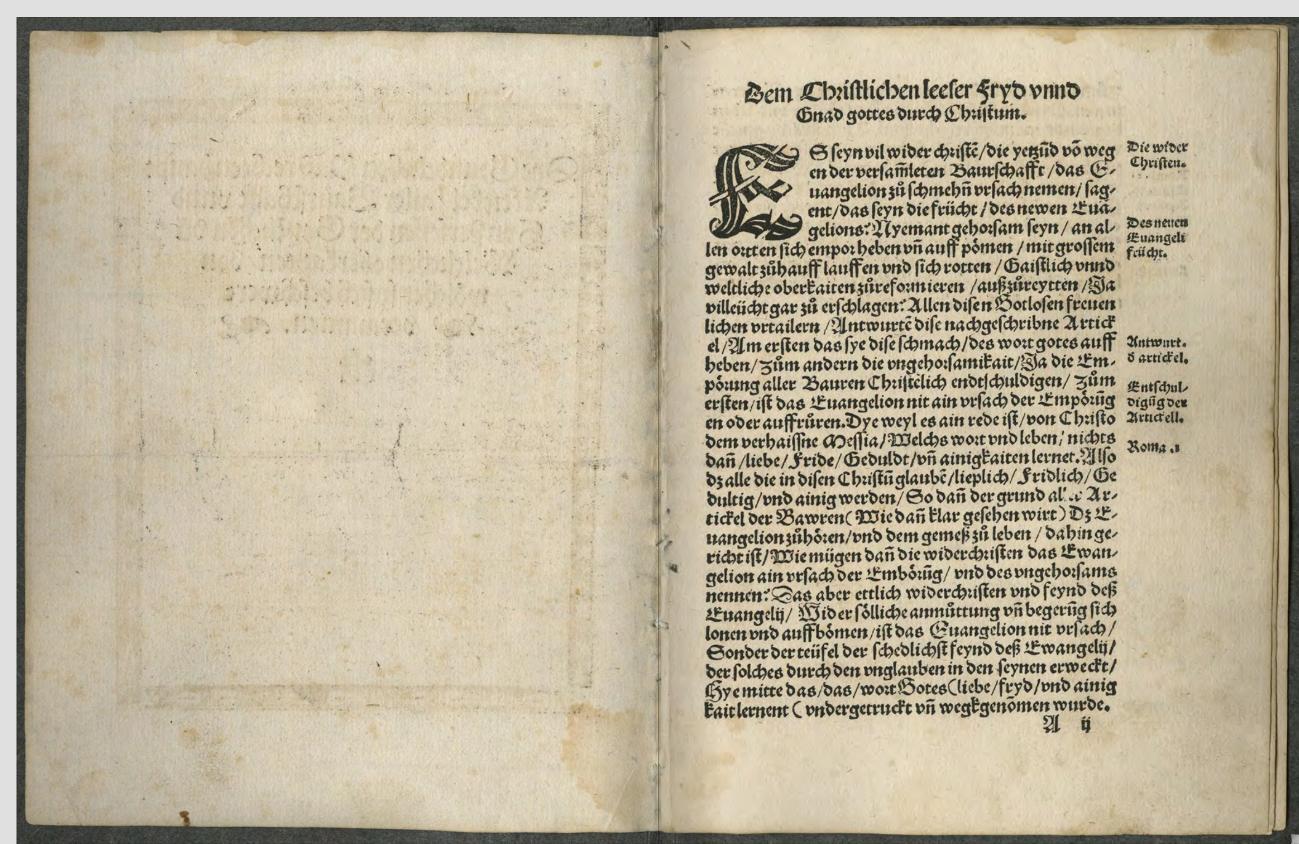 Dem Christlichen leeser Fryd vnnd
Gnad gottes durch Christum.
ES seyn vil wider christē/die yetzūd vō weg
en der versam̄leten Baurschafft/das E-
uangelion zů schmehn̄ vrsach nemen/sag-
ent/das seyn die frücht/des newen Eua-
gelions? Nyemant gehorsam seyn/an al-
len ortten sich empor heben vn̄ auff pömen/mit grossem
gewalt zůhauff lauffen vnd sich rotten/Gaistlich vnnd
weltliche oberkaiten zůreformieren/außzůreytten/Ja
villeücht gar zů erschlagen? Allen disen Gotlosen freuen
lichen vrtailern/Antwurtē dise nachgeschribne Artick
el/Am ersten das sye dise schmach/des wort gotes auff
heben/zům andern die vngehorsamikait/Ja die Em-
pörung aller Bauren Christelich endtschuldigen/zům
ersten/ist das Euangelion nit ain vrsach der Empörūg
en oder auffrůren. Dye weyl es ain rede ist/von Christo
dem verhaissne Messia/Welchs wort vnd leben/nichts
dan̄/liebe/Fride/Geduldt/vn̄ ainigkaiten lernet. Also
dz alle die in disen Christū glaubē/lieplich/Fridlich/Ge
dultig/vnd ainig werden/So dan̄ der grund aller Ar-
tickel der Bawren (Wie dan̄ klar gesehen wirt) Dz E-
uangelion zůhören/vnd dem gemeß zů leben/dahin ge-
richt ist/Wie mügen dan̄ die widerchristen das Ewan-
gelion ain vrsach der Embörūg/vnd des vngehorsams
nennen? Das aber ettlich widerchristen vnd feynd deß
Euangelij/Wider sölliche anmůttung vn̄ begerūg sich
lonen vnd auffbömen/ist das Euangelion nit vrsach/
Sonder der teüfel der schedlichst feynd deß Ewangelij/
der solches durch den vnglauben in den seynen erweckt/
Hye mitte das/das/wort Gotes (liebe/fryd/vnd ainig
kait lernent ( vndergetruckt vn̄ wegkgenōmen wurde.
A ij
Die wider
Christen.
Des neuen
Euangeli
frücht.
Antwurt.
d artickel.
Entschul-
digūg der
Artickell.
Roma .1